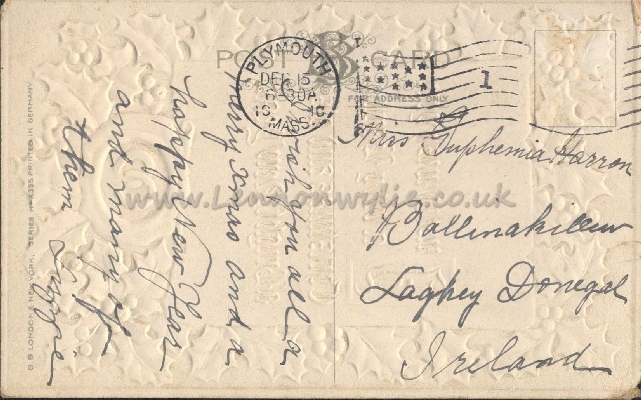 POST CARD
FOR ADDRESS ONLY
PLYMOUTH
DEC 15
6-30A
MASS.
1
wish you all a
merry Xmas and a
happy New Year
and many of
them Lizzie
Mrs Euphemia Harron
Ballinakillew
Laghey Donegal
Ireland
B.B LONDON & NEW YORK. SERIES PRINTED IN GERMANY
www.Lennonwylie.co.uk